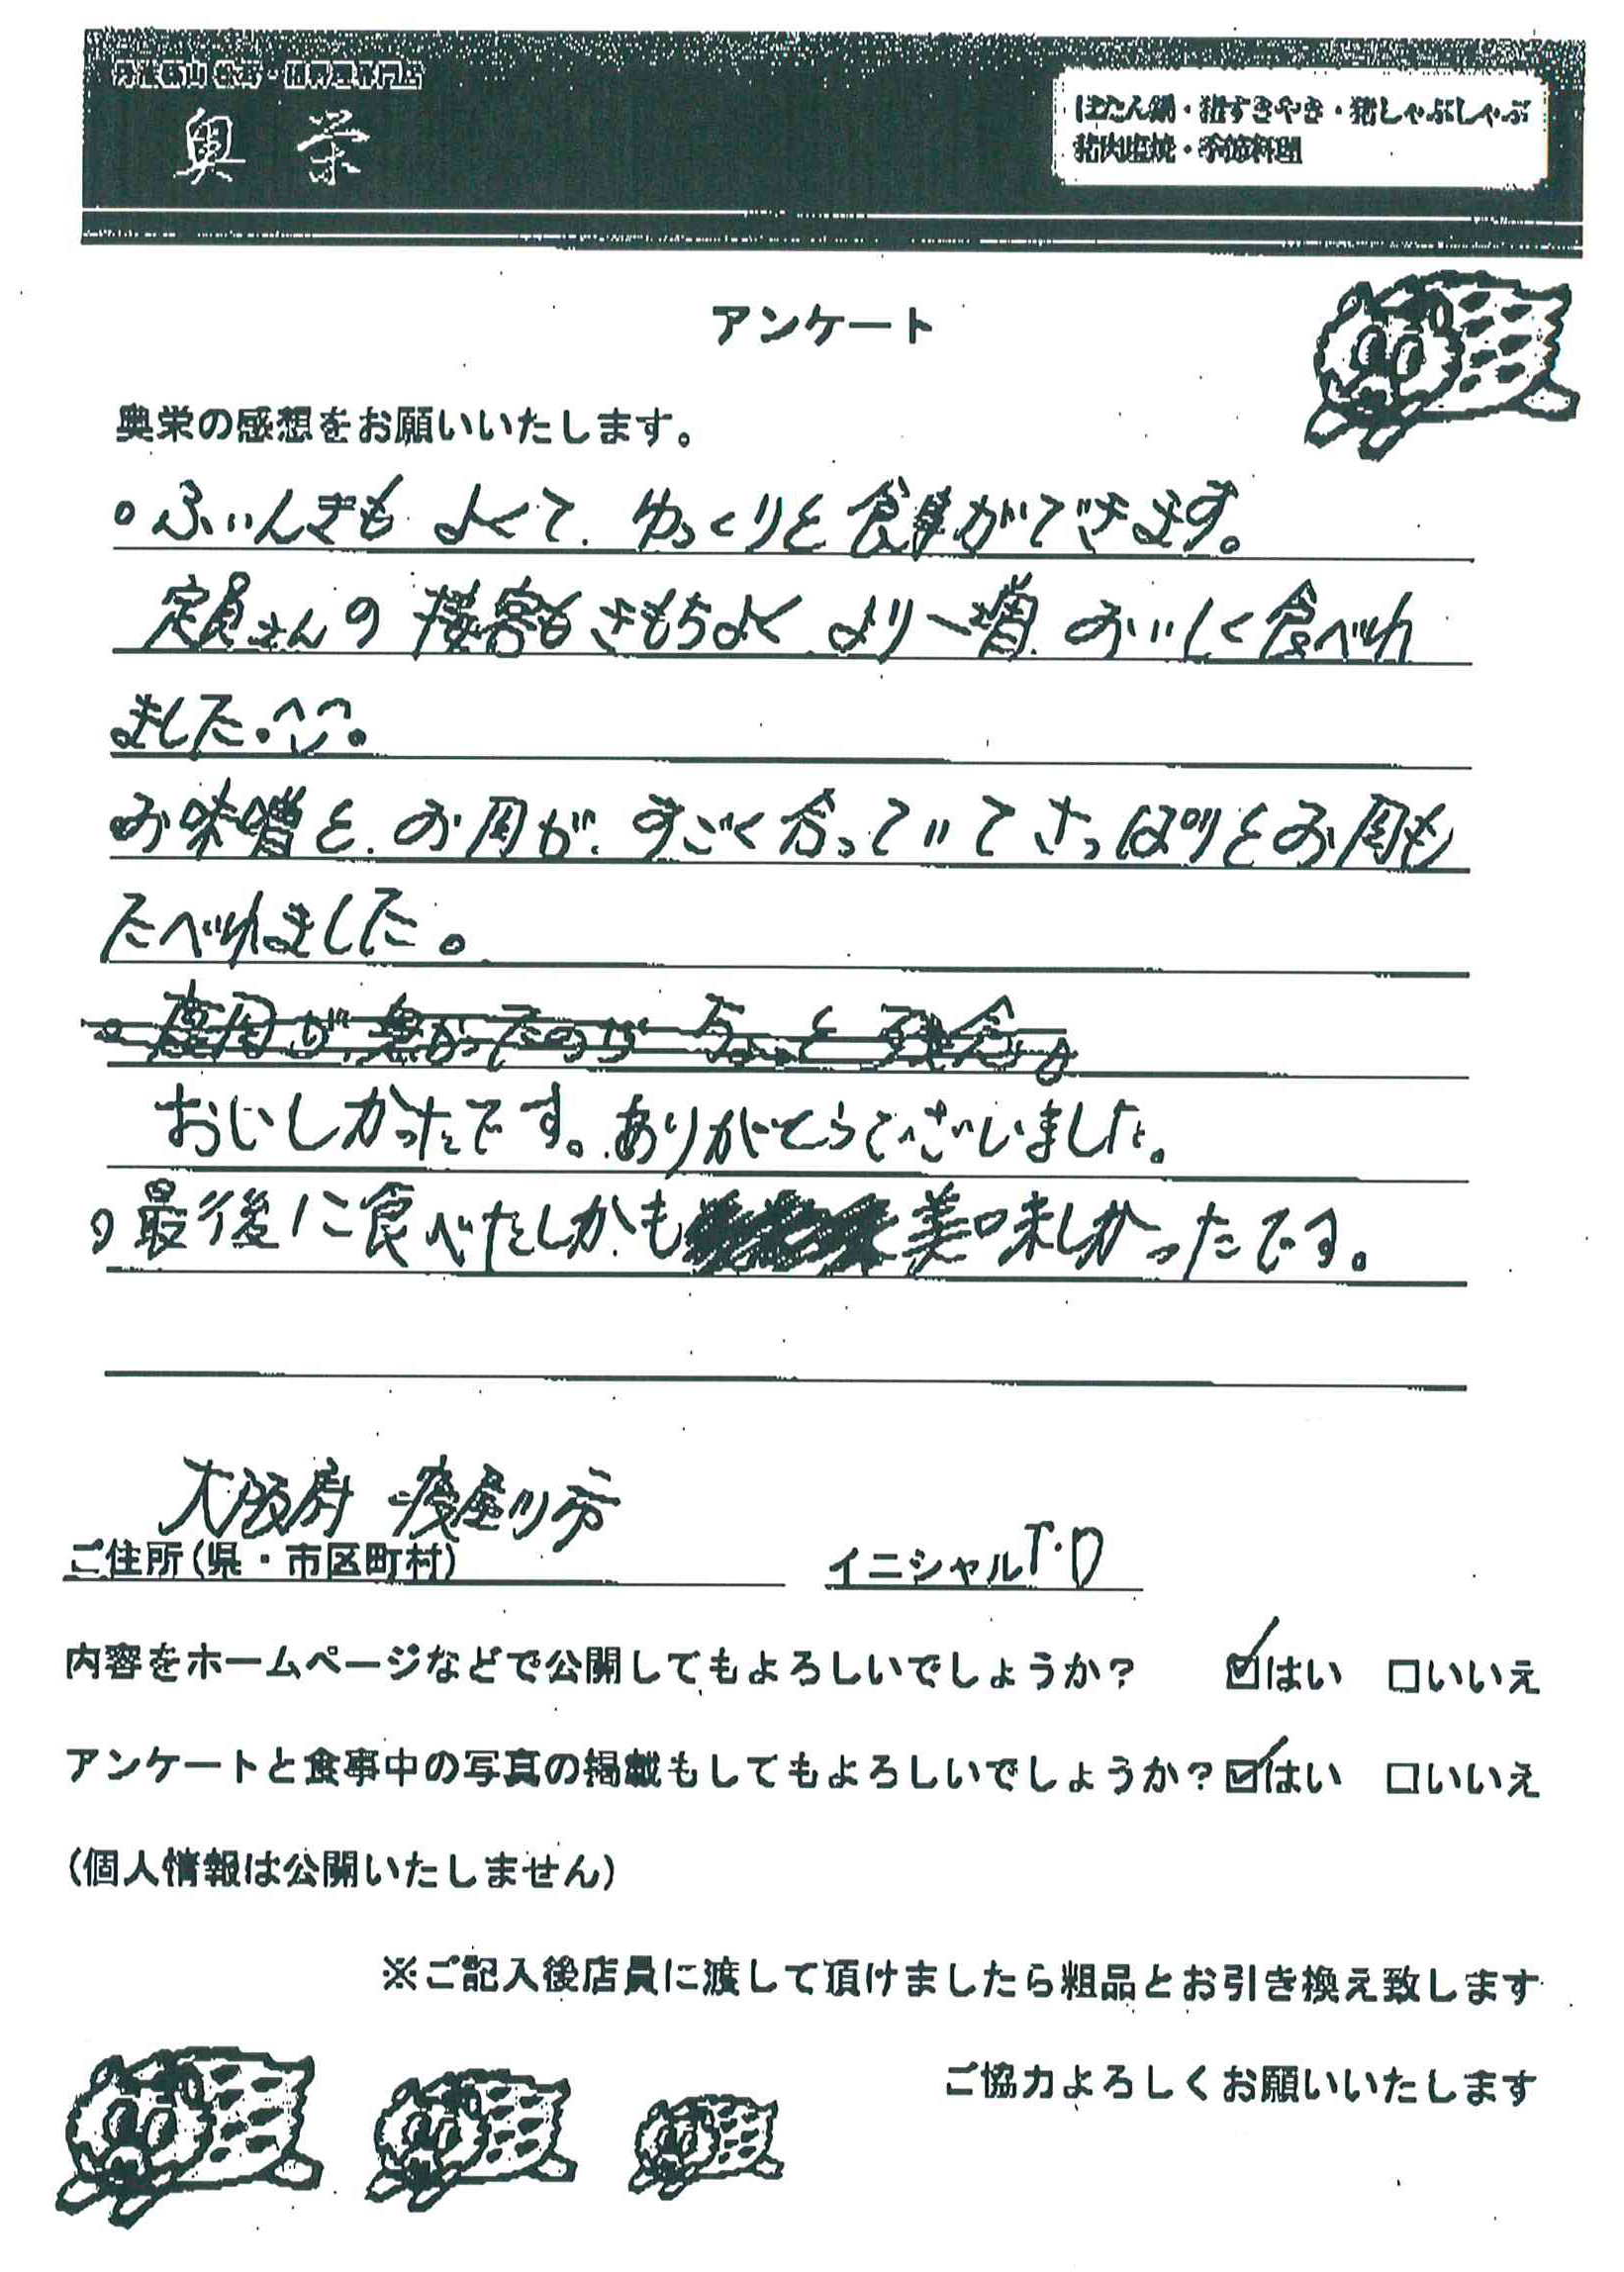 丹波篠山 猪料理専門店
奥栄
ぼたん鍋・猪すきやき・猪しゃぶしゃぶ
猪肉塩焼・季節料理
アンケート
奥栄の感想をお願いいたします。
・ふいんきも よくて、ゆっくりと食事ができます。
定員さんの 接客もきもちよく より一増 おいしく食べれ
ました。^◡^。
お味噌と、お肉が、すごく合っていてさっぱりとお肉も
たべれました。
おいしかったです。ありがとうございました。
・最後に食べたしかも 美味しかったです。
大阪府 寝屋川市
ご住所(県・市区町村)
イニシャル T・D
内容をホームページなどで公開してもよろしいでしょうか? ☑はい □いいえ
アンケートと食事中の写真の掲載もしてもよろしいでしょうか?☑はい □いいえ
(個人情報は公開いたしません)
※ご記入後店員に渡して頂けましたら粗品とお引き換え致します
ご協力よろしくお願いいたします